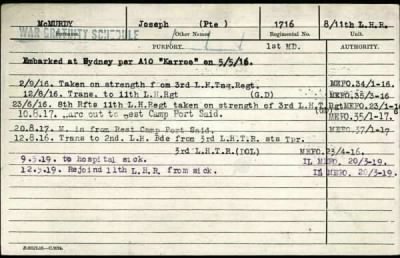 McMURDY Joseph (Pte) 1716 8/11th L.H.R.
WAR GRATUITY SCHEDULE Other Names Regimental No. Unit.
PURPORT. 1st MD. AUTHORITY.
Embarked at Sydney per A10 "Karroo" on 5/5/16.
2/9/16. Taken on strength from 3rd L.H.Tng.Regt. MEFO.34/1-16.
12/8/16. Trans. to 11th L.H.Rgt (G.D) MEFO.
23/6/16. 8th Rfts 11th L.H.Regt taken on strength of 3rd L.H.T.Rgt MEFO.23/1-16
10.8.17. out to Rest Camp Port Said. MEFO.35/1-17.
20.8.17. M. in from Rest Camp Port Said. MEFO.37/1-17.
12.8.16. Trans to 2nd. L.H. Bde from 3rd L.H.T.R. sts Tpr.
3rd L.H.T.R.(DOL) MEFO.23/4-16.
9.5.19. to hospital sick. IL MEFO. 20/3-19.
12.5.19. Rejoind 11th L.H.R. from sick. IL MEFO. 20/3-19.